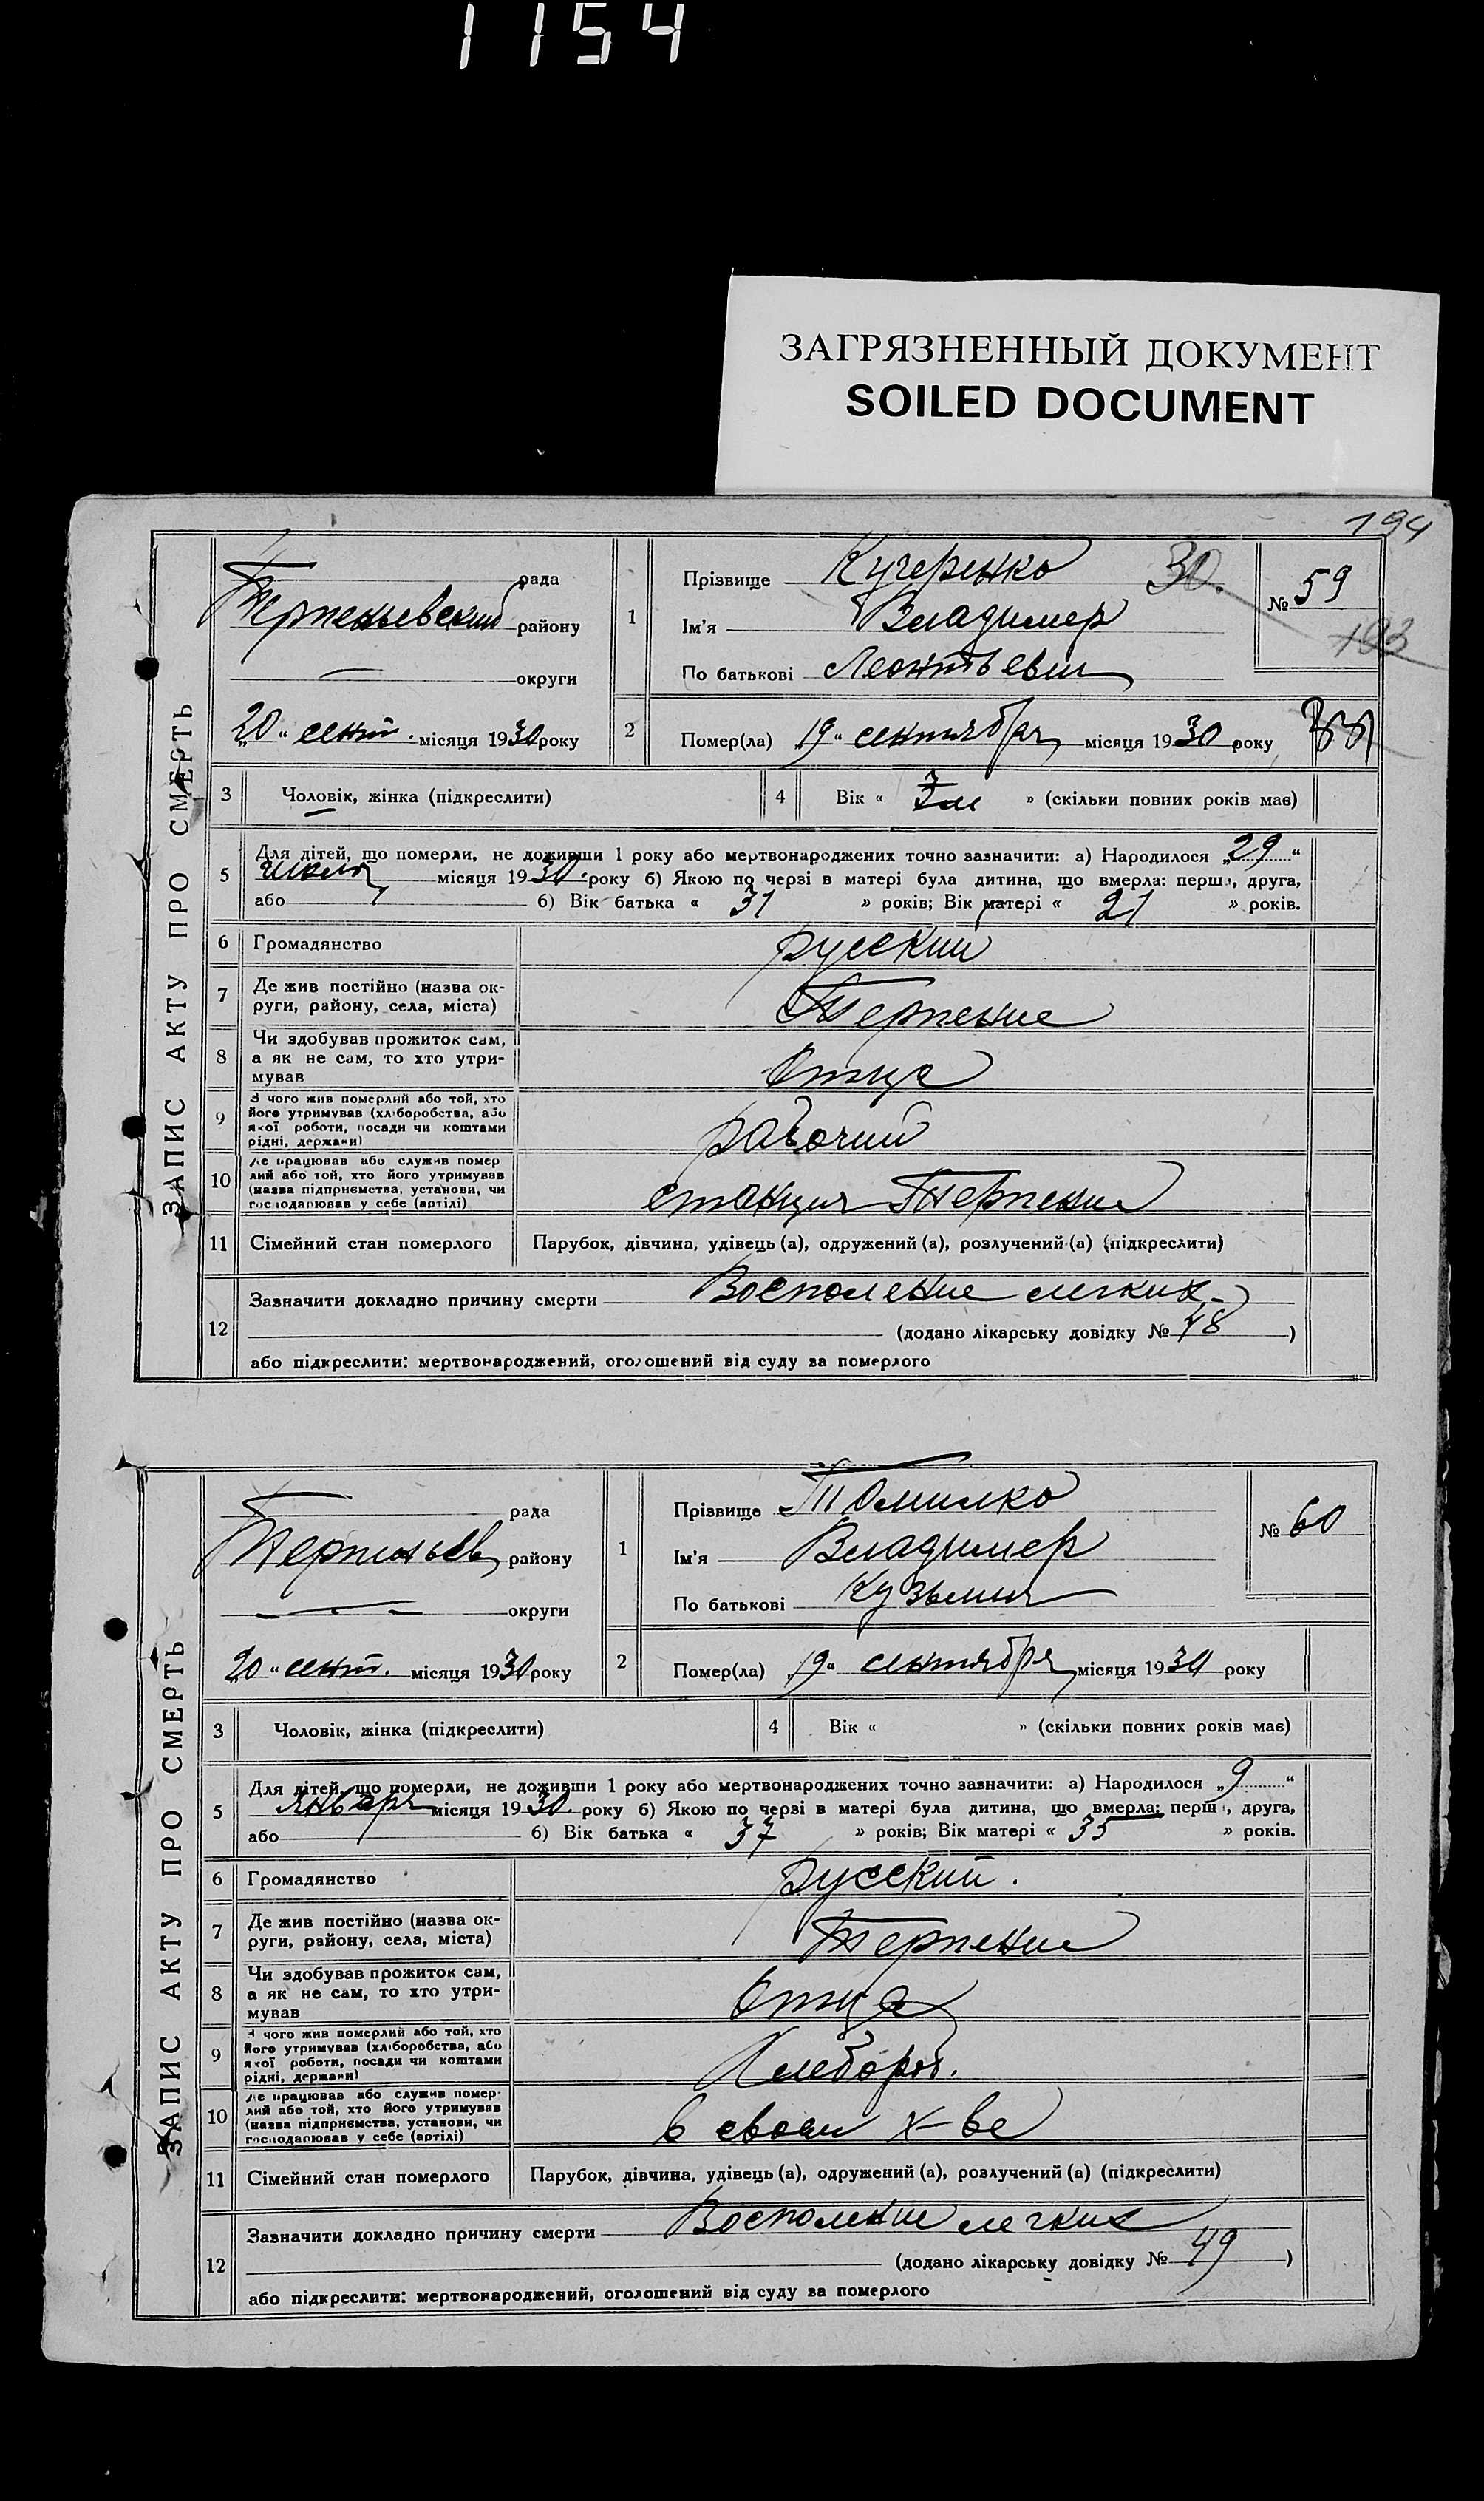 1154
ЗАГРЯЗНЕННЫЙ ДОКУМЕНТ
SOILED DOCUMENT
194
ЗАПИС АКТУ ПРО СМЕРТЬ
рада
Терпеньевский району
округи
„20“ сент. місяця 1930 року
1
Прізвище Кучеренко 30.
Ім'я Владимер
По батькові Леонтьевич
№ 59
193
2
Помер(ла) „19“ сентября місяця 1930 року
3 Чоловік, жінка (підкреслити)
4 Вік « » (скільки повних років має)
5 Для дітей, що померли, не доживши 1 року або мертвонароджених точно зазначити: а) Народилося „29“
июля місяця 1930. року б) Якою по черзі в матері була дитина, що вмерла: перша, друга,
або б) Вік батька « 31 » років; Вік матері « 21 » років.
6 Громадянство русский
7 Де жив постійно (назва ок-
руги, району, села, міста) Терпение
8 Чи здобував прожиток сам,
а як не сам, то хто утри-
мував Отца
9 З чого жив померлий або той, хто
його утримував (хліборобства, або
якої роботи, посади чи коштами
рідні, держави) рабочий
10 Де працював або служив помер
лий або той, хто його утримував
(назва підприємства, установи, чи
господарював у себе (артілі) станция Терпение
11 Сімейний стан померлого Парубок, дівчина, удівець (а), одружений (а), розлучений (а) (підкреслити)
12 Зазначити докладно причину смерти Восполение легких
(додано лікарську довідку № 48 )
або підкреслити: мертвонароджений, оголошений від суду за померлого
ЗАПИС АКТУ ПРО СМЕРТЬ
рада
Терпеньев району
округи
„20“ сент. місяця 1930 року
1
Прізвище Томилко
Ім'я Владимер
По батькові Кузьмич
№ 60
2
Помер(ла) „19“ сентября місяця 1930 року
3 Чоловік, жінка (підкреслити)
4 Вік « » (скільки повних років має)
5 Для дітей, що померли, не доживши 1 року або мертвонароджених точно зазначити: а) Народилося „9“
января місяця 1930. року б) Якою по черзі в матері була дитина, що вмерла: перша, друга,
або б) Вік батька « 37 » років; Вік матері « 35 » років.
6 Громадянство русский.
7 Де жив постійно (назва ок-
руги, району, села, міста) Терпение
8 Чи здобував прожиток сам,
а як не сам, то хто утри-
мував Отца
9 З чого жив померлий або той, хто
його утримував (хліборобства, або
якої роботи, посади чи коштами
рідні, держави) Хлебороб.
10 Де працював або служив помер-
лий або той, хто його утримував
(назва підприємства, установи, чи
господарював у себе (артілі) в своем х-ве
11 Сімейний стан померлого Парубок, дівчина, удівець (а), одружений (а), розлучений (а) (підкреслити)
12 Зазначити докладно причину смерти Восполение легких
(додано лікарську довідку № 49 )
або підкреслити: мертвонароджений, оголошений від суду за померлого